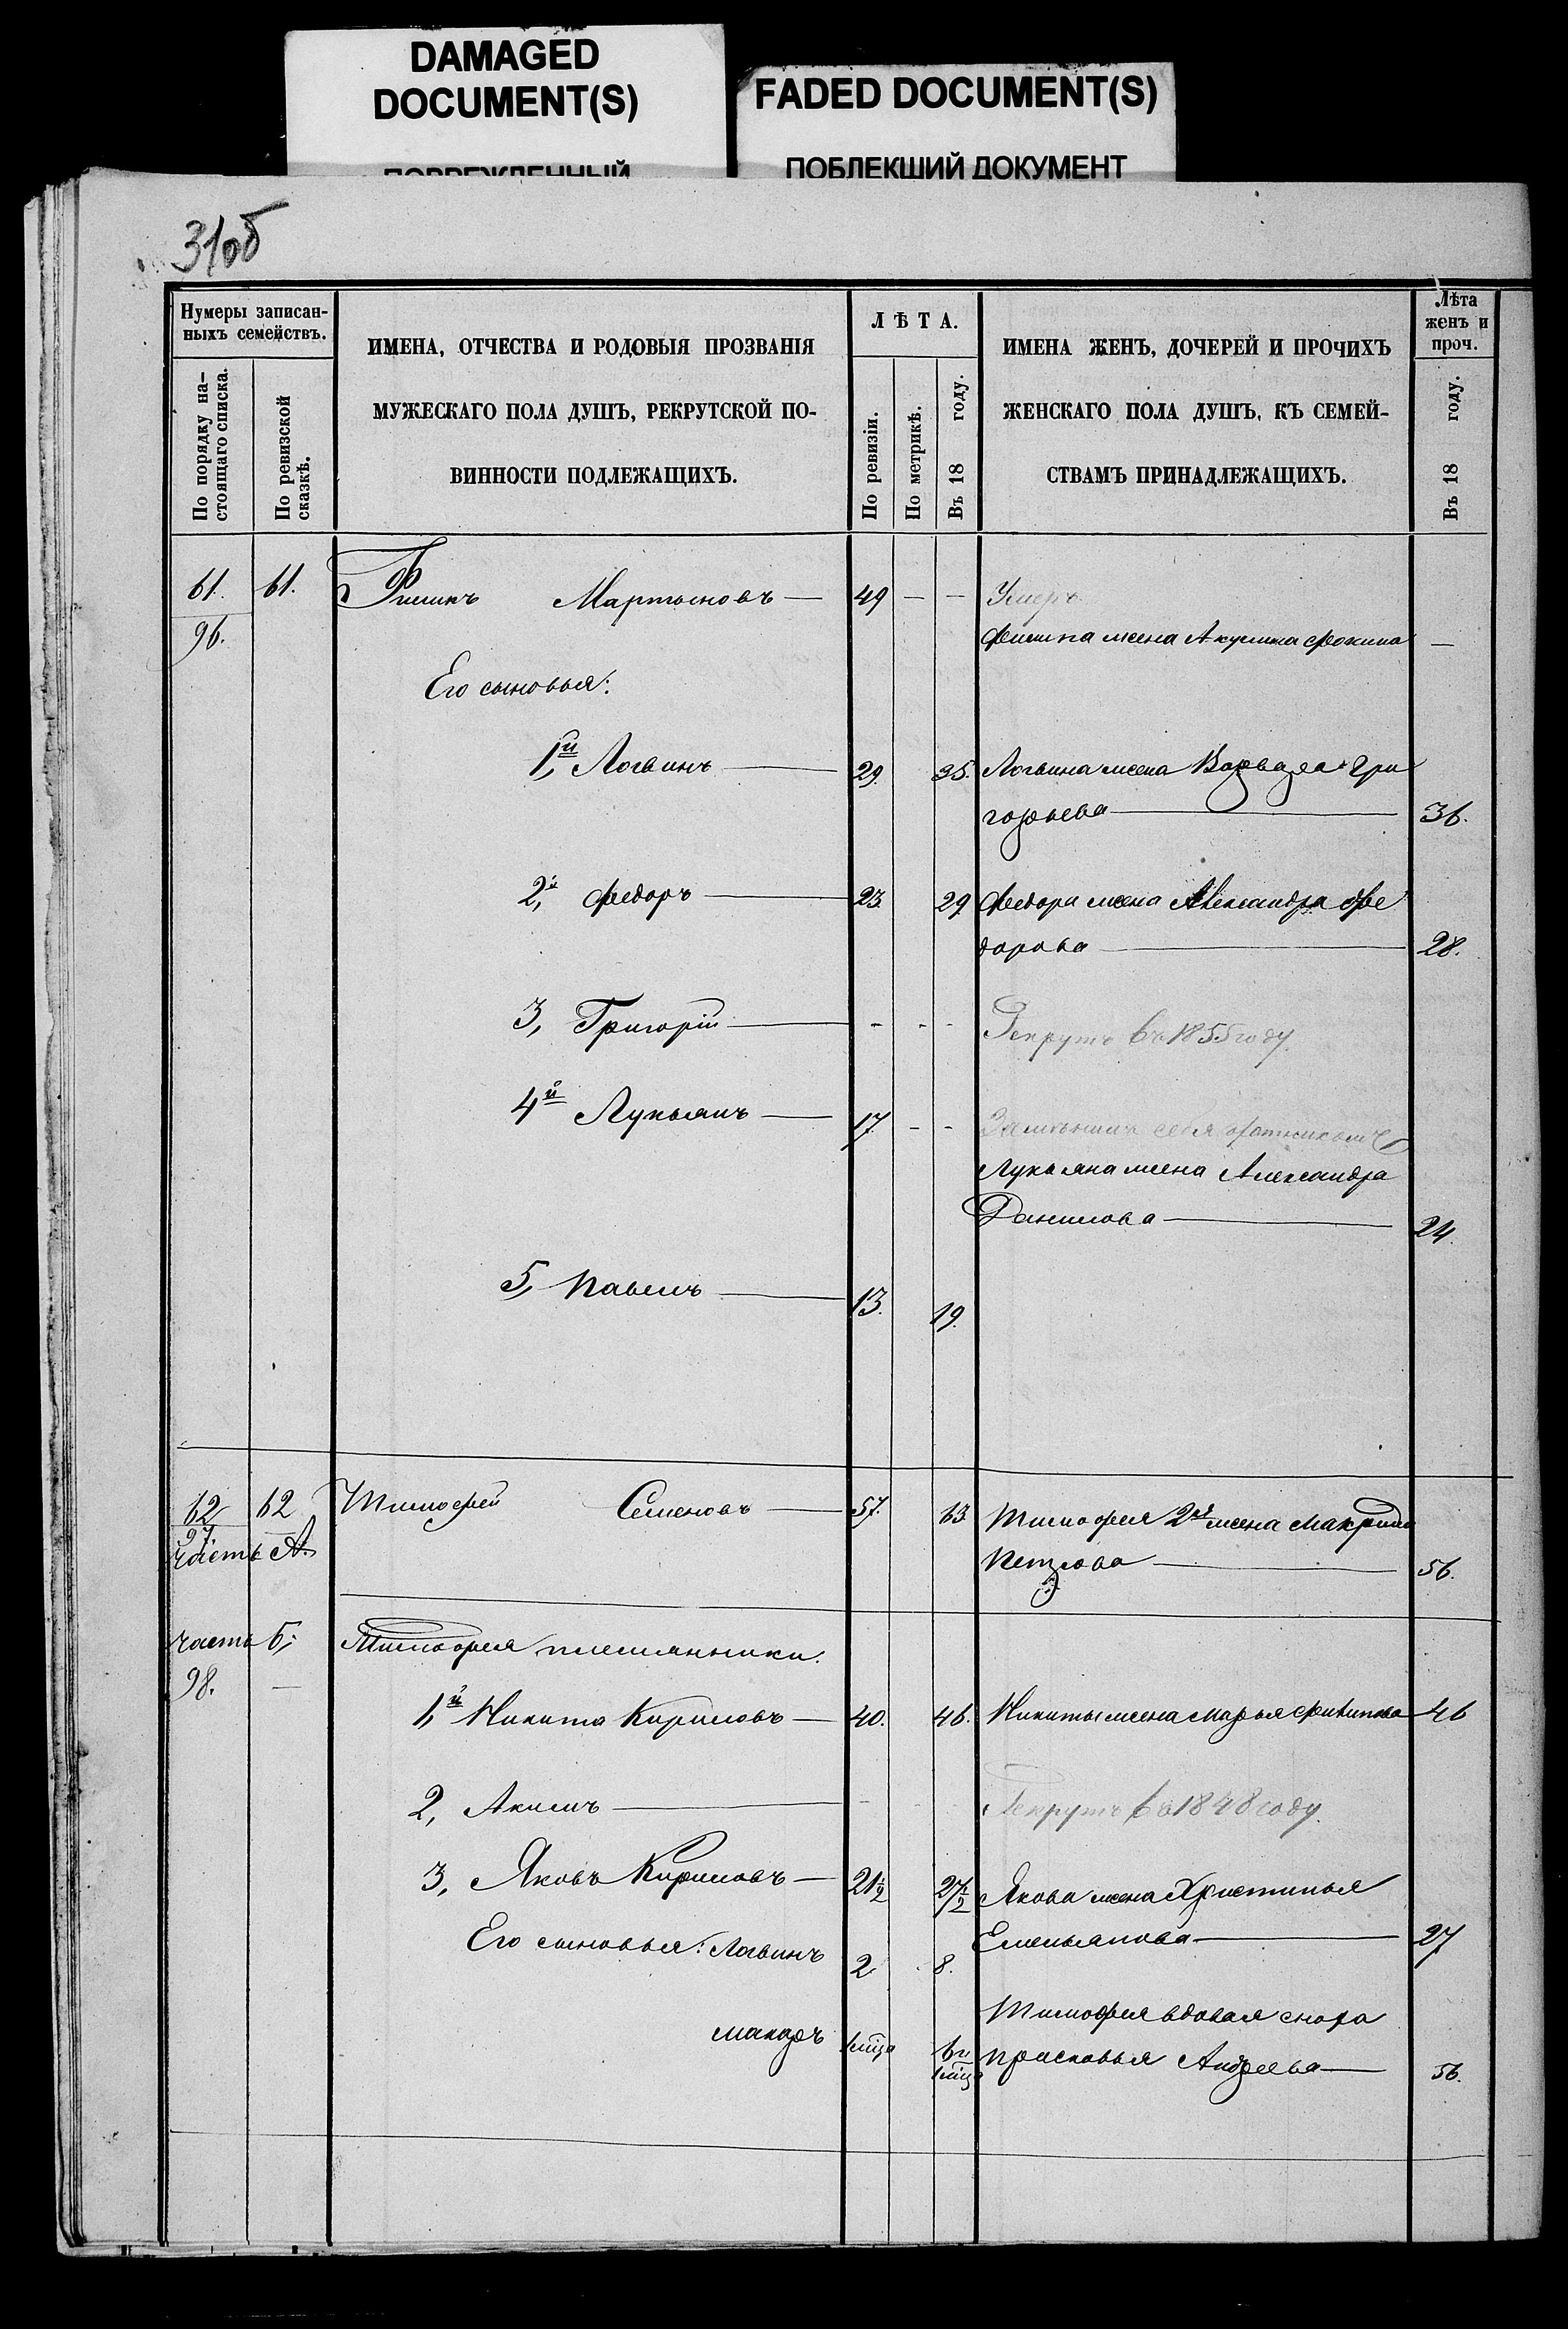 DAMAGED
DOCUMENT(S)
ПОВРЕЖДЕННЫЙ
FADED DOCUMENT(S)
ПОБЛЕКШИЙ ДОКУМЕНТ
31об
Нумеры записан-
ныхъ семействъ.
По порядку на-
стоящаго списка.
По ревизской
сказкѣ.
ИМЕНА, ОТЧЕСТВА И РОДОВЫЯ ПРОЗВАНІЯ
МУЖЕСКАГО ПОЛА ДУШЪ, РЕКРУТСКОЙ ПО-
ВИННОСТИ ПОДЛЕЖАЩИХЪ.
ЛѢТА.
По ревизіи.
По метрикѣ.
Въ 18 году.
ИМЕНА ЖЕНЪ, ДОЧЕРЕЙ И ПРОЧИХЪ
ЖЕНСКАГО ПОЛА ДУШЪ, КЪ СЕМЕЙ-
СТВАМЪ ПРИНАДЛЕЖАЩИХЪ.
Лѣта
женъ и
проч.
Въ 18 году.
61. 61. Мартыновъ — 49 — — Умеръ
96. жена Акулина Фокина —
Его сыновья:
1й, Логвинъ — 29. 35. Логвина жена Варвара Гри
горьева — 36.
2й, Федоръ — 23. 29 Федора жена Александра Фе
дорова — 28.
3, Григорій — - - - Рекрутъ въ 1855 году.
4й Лукьянъ — 17. - -
Лукьяна жена Александра
Данилова — 24.
5, Павелъ — 13. 19.
62 62 Тимофей Семеновъ — 57. 63. Тимофея 2я жена
97.
часть А.
Петрова — 56.
часть Б; Тимофея племянники.
98. —
1й Никита Кириловъ — 40. 46. Никиты жена Марья Филипова 46
2, Акимъ — Рекрутъ въ 1848 году.
3, Яковъ Кириловъ — 21½ 27½ Якова жена Христинья
Емельянова — 27
Его сыновья: Логвинъ 2 8.
Тимофея вдовая сноха
Макаръ 1 мца 6 и
1 мца Прасковья Андреева — 56.